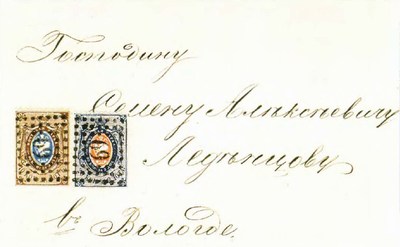 Господину
Семену Алексѣевичу
Леденцову
въ Вологде